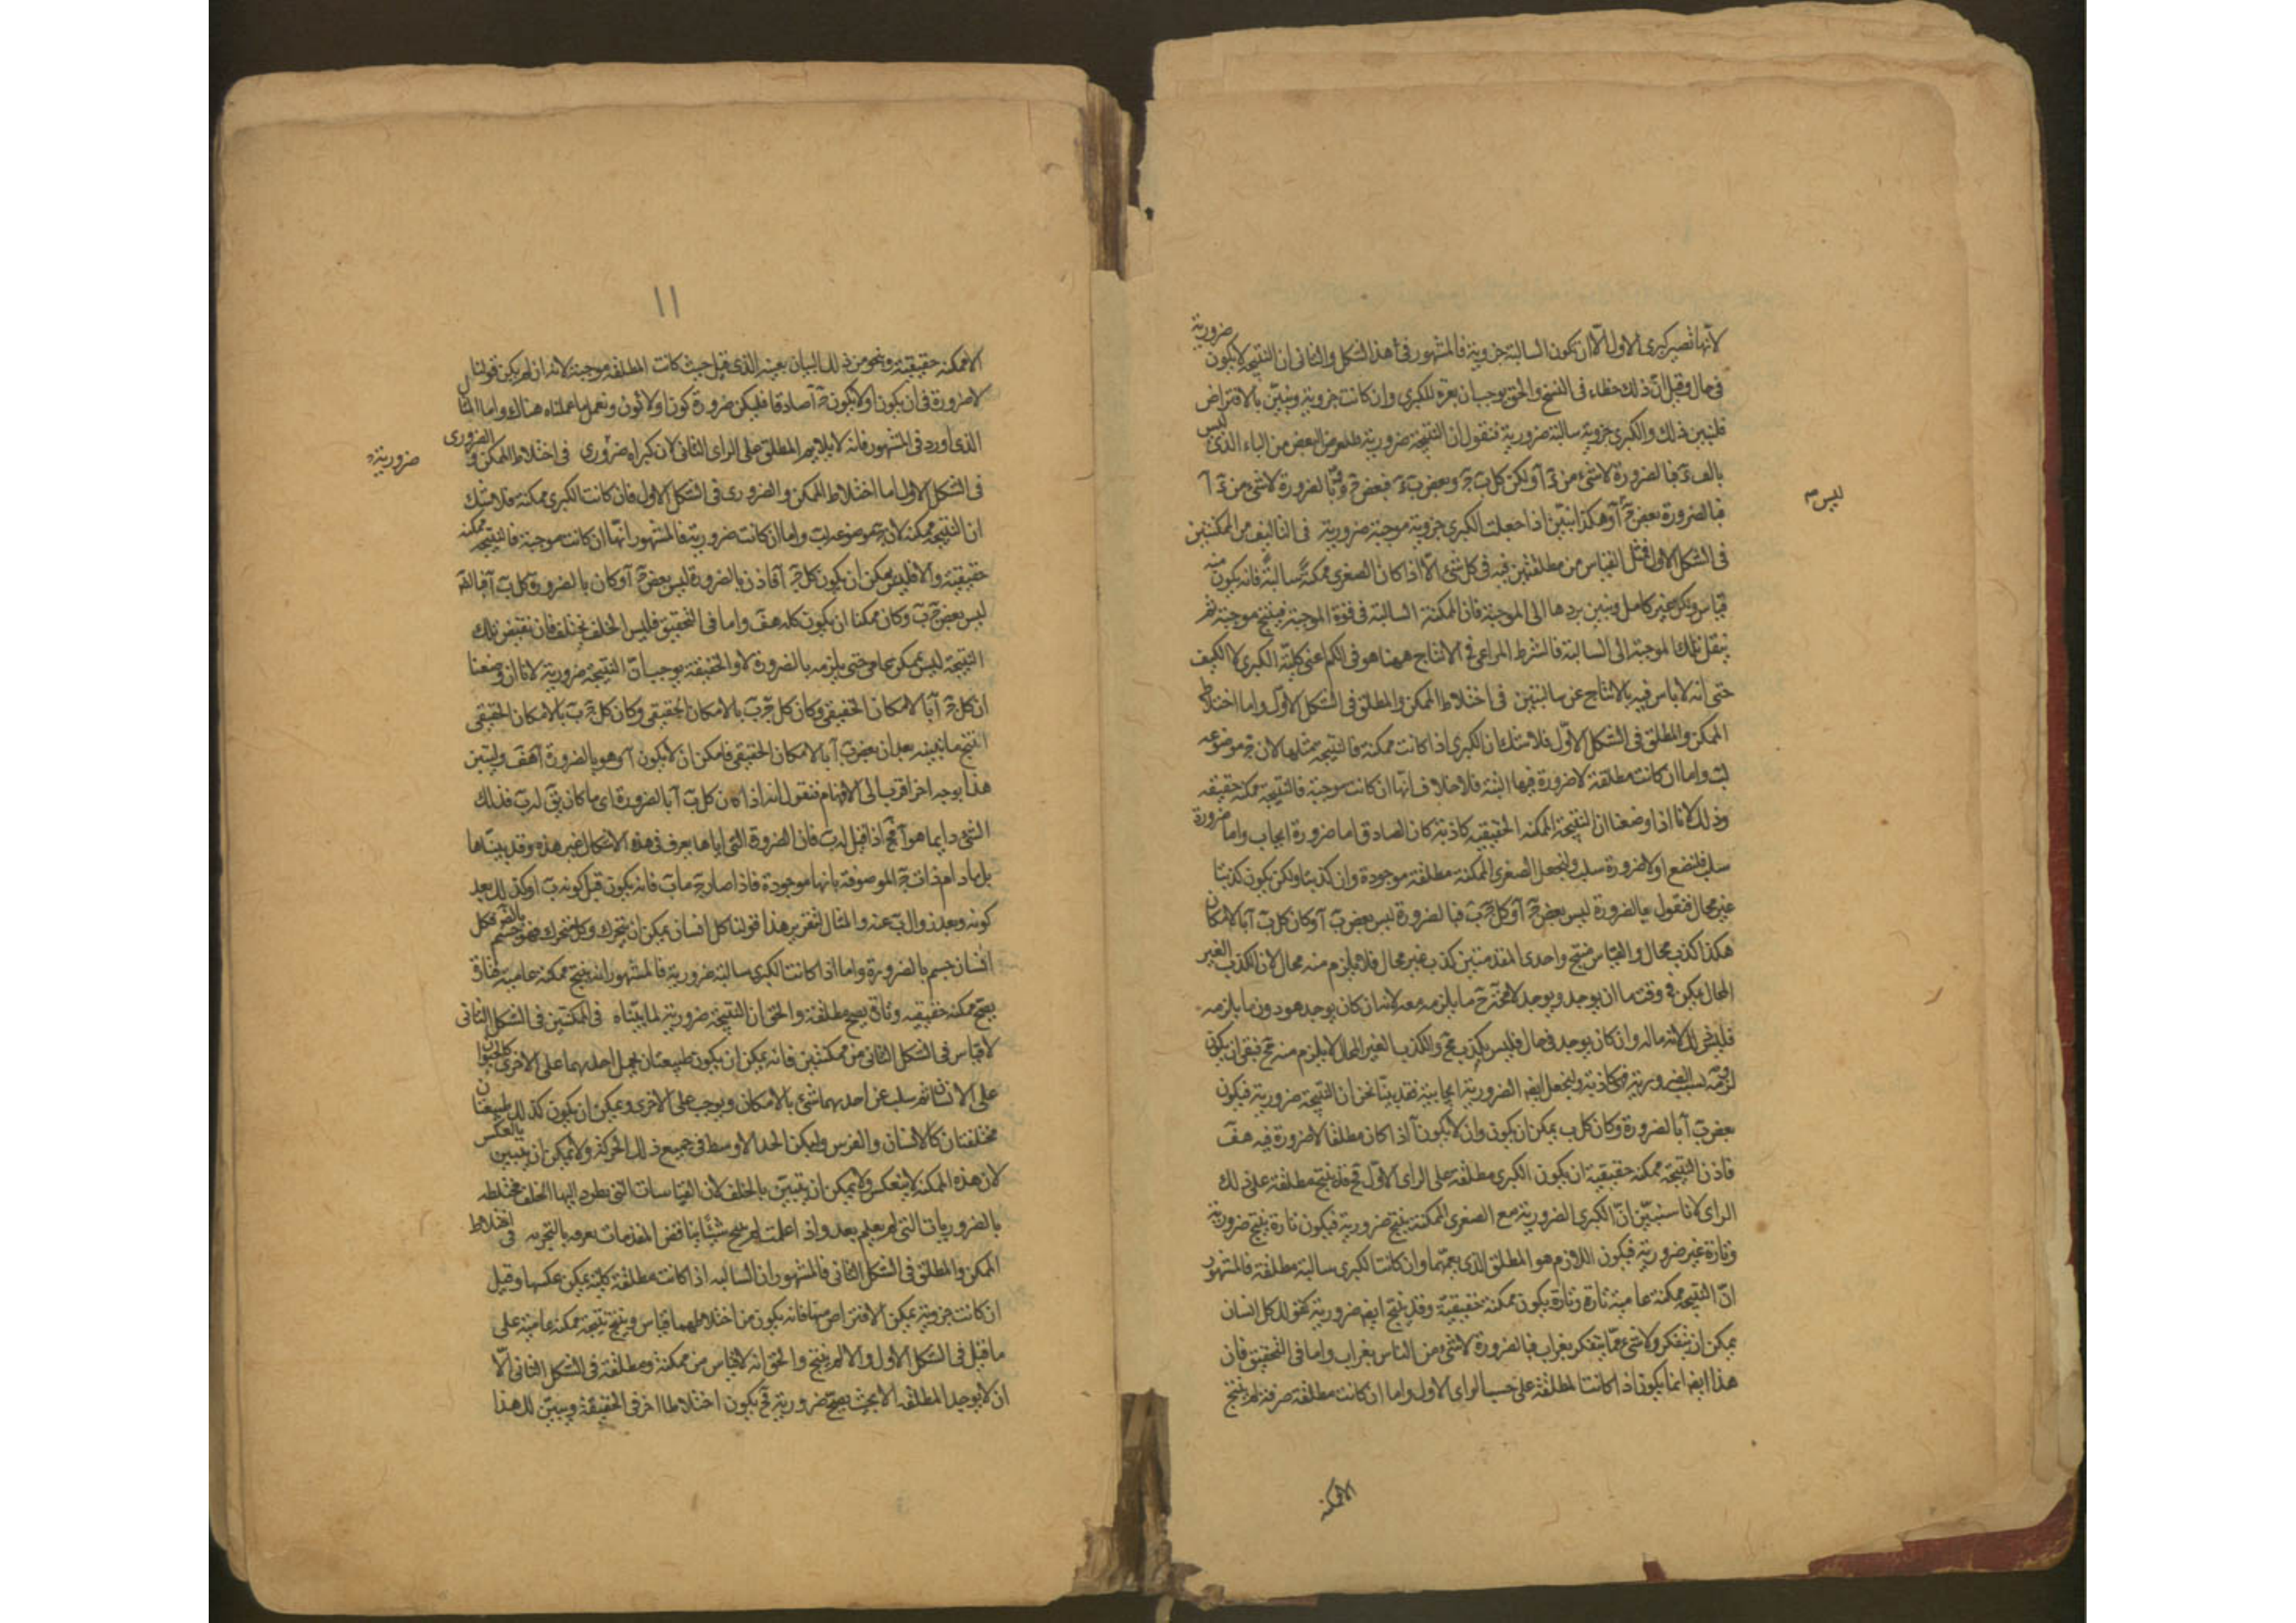 لأنها تصير كبرى الاول الا ان تكون السالبة جزوية فالمشهور فى هذا الشكل والثانى ان النتيجة لا يكون ضرورية
فى حال وقيل ان ذلك خطاء فى النسخ والحق يوجب ان يعرف للكبرى وان كانت جزوية ويتبين بالافتراض
فلنبين ذلك والكبرى جزوية سالبة ضرورية فنقول ان النتيجة ضرورية فلنفرض البعض من الباء الذى ليس
فبالضرورة لا شىء من د آ ولكن كل ب ج وبعض ب د فبعض ج د وبالضرورة لا شىء من د آ
ليس م
فبالضرورة بعض ج آ وهكذا يتبين اذا جعلت الكبرى جزوية موجبة ضرورية فى التاليف من الممكنتين
فى الشكل الاول مثل القياس من مطلقتين فيه فى كل شىء الا اذا كان الصغرى ممكنة سالبة فانه يكون منه
قياس ولكن غير كامل ويتبين بردها الى الموجبة فان الممكنة السالبة فى قوة الموجبة فينتج موجبة ثم
ينقل تلك الموجبة الى السالبة فالشرط المراعى فى الانتاج ههنا هو فى الكم اعنى كلية الكبرى لا الكيف
حتى انه لا باس فيه بالانتاج عن سالبتين فى اختلاط الممكن والمطلق فى الشكل الاول واما اختلاط
الممكن والمطلق فى الشكل الاول فلا شك ان الكبرى اذا كانت ممكنة فالنتيجة مثلها لان ج موضوعه
لب واما ان كانت مطلقة لا ضرورة فيها البتة فلا خلاف انها ان كانت موجبة فالنتيجة ممكنة حقيقية
وذلك لانا اذا وضعنا ان النتيجة الممكنة الحقيقيه كاذبة كان الصادق اما ضرورة ايجاب واما ضرورة
سلب فلنضع اولا ضرورة سلب ولنجعل الصغرى الممكنة مطلقة موجودة وان كذبنا ولكن يكون كذبنا
غير محال فنقول بالضرورة ليس بعض ج آ وكل ج ب فبالضرورة ليس بعض ب آ وكان كل ب آ بالامكان
هكذا كذب محال والقياس منتج واحدى المقدمتين كذب غير محال فلا يلزم منه محال لان الكذب الغير
المحال يمكن فى وقت ما ان يوجد ويوجد لا محة ح ما يلزمه معه لانه ان كان يوجد هو دون ما يلزمه
فليس ذلك لازمه له وان كان يوجد فى حال فليس بكذب مح والكذب الغير المحال لا يلزم منه مح فبقى ان يكون
لزمه بسبب الضرورية فهى كاذبة ولنجعل ايضا الضرورية ايجابية فقد بينا نحن ان النتيجة ضرورية فيكون
بعض ب آ بالضرورة وكان كل ب يمكن ان يكون وان لا يكون آ اذا كان مطلقا لا ضرورة فيه هف
فاذن النتيجة ممكنة حقيقية ان يكون الكبرى مطلقة على الراى الاول ح قد ينتج مطلقة على ذلك
الراى لانا سنبين ان الكبرى الضرورية مع الصغرى الممكنة ينتج ضرورية فيكون تارة ينتج ضرورية
وتارة غير ضرورية فيكون اللازم هو المطلق الذى يعمهما وان كانت الكبرى سالبة مطلقة فالمشهور
ان النتيجة ممكنة عامية تارة وتارة يكون ممكنة حقيقية وقد ينتج ايضا ضرورية كقولك كل انسان
يمكن ان يتفكر ولا شىء مما يتفكر بغراب فبالضرورة لا شىء من الناس بغراب واما فى التحقيق فان
هذا ايضا انما يكون اذا كانت المطلقة على حسب الراى الاول واما ان كانت مطلقة صرفة لم ينتج
الا ممكنة
١١
الا ممكنه حقيقية ونحو من ذلك البيان بعينه الذى قيل حيث كانت المطلقة موجبة لانه ان لم يكن قولنا
لا ضرورة فى ان يكون او لا يكون ج آ صادقا فليكن ضرورة كون او لا كون ونعمل ما عملناه هناك واما المثال
الذى اورد فى المشهور فانه لا يلايم المطلق على الراى الثانى لان كبراه ضرورى فى اختلاط الممكن والضرورى
ضرورية
فى الشكل الاول اما اختلاط الممكن والضرورى فى الشكل الاول فان كانت الكبرى ممكنة فلا شك
ان النتيجة ممكنة لان ج موضوعة لب واما ان كانت ضرورية فالمشهور انها ان كانت موجبة فالنتيجة ممكنه
حقيقية والا فليس يمكن ان يكون كل ج آ فاذن بالضرورة ليس بعض ج آ وكان بالضرورة كل ب آ فبالضرورة
ليس بعض ج ب وكان ممكنا ان يكون كله هف واما فى التحقيق فليس الخلف بخلف فان نقيض تلك
النتيجة ليس يمكن عامى حتى يلزمه بالضرورة لا والحقيقة يوجب ان النتيجة ضرورية لانا ان وضعنا
ان كل ج آ بالامكان الحقيقى وكان كل ج ب بالامكان الحقيقى وكان كل ج ب بالامكان الحقيقى
انتج ما نبينه بعد ان بعض ب آ بالامكان الحقيقى فامكن ان لا يكون آ وهو بالضرورة آ هف وليتبين
هذا بوجه اخر اقرب الى الافهام فنقول انه اذا كان كل ب آ بالضرورة اى ما كان يق له ب فذلك
الشىء دايما هو آ فح اذا قيل له ب فان الضرورة التى اياها يعرف فى هذه الاشكال غير هذه وقد بيناها
بل ما دام ذات ج الموصوفة بانها موجودة فاذا صار ج ما ب فانه يكون قبل كونه ب او كذلك بعد
كونه وبعد زوال ب عنه والمثال لتقرير هذا قولنا كل انسان يمكن ان يتحرك وكل متحرك فهو جسم بالضرورة فكل
انسان جسم بالضرورة واما اذا كانت الكبرى سالبة ضرورية فالمشهور انه ينتج ممكنة عامية فتارة
يصح ممكنه حقيقيه وتارة يصح مطلقة والحق ان النتيجة ضرورية لما بيناه فى الممكنتين فى الشكل الثانى
لا قياس فى الشكل الثانى من ممكنتين فانه يمكن ان يكون طبيعتان يحمل احديهما على الاخرى كالحيوان
على الانسان ثم سلب عن احديهما شىء بالامكان ويوجب على الاخرى ويمكن ان يكون كذلك طبيعتان
مختلفتان كالانسان والفرس وليكن الحد الاوسط فى جميع ذلك الحركة ولا يمكن ان يتبين بالعكس
لان هذه الممكنة لا ينعكس ولا يمكن ان يتبين بالخلف لان القياسات التى يطرد اليها الخلف مختلطه
بالضروريات التى لم يعلم بعد واذا عملت لم ينتج شيئا يناقض المقدمات يعرفه بالتجربه فى اختلاط
الممكن والمطلق فى الشكل الثانى فالمشهور ان السالبه اذا كانت مطلقة كلية يمكن عكسها وقيل
ان كانت جزوية يمكن الافتراض منها فانه يكون من اختلاطهما قياس وينتج نتيجة ممكنة عامية على
ما قيل فى الشكل الاول والا لم ينتج والحق انه لا قياس من ممكنة ومطلقة فى الشكل الثانى الا
ان لا يوجد المطلقة الا بحيث يصح ضرورية فح يكون اختلاطا اخر فى الحقيقة ويتبين لك هذا